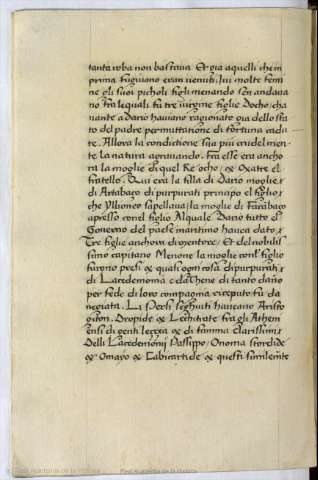 tanta roba non bastava Et gia aquelli che in
prima fugivano eran venuti. Ivi molte femi
ne gli suoi picholi figli menando sen andava
no fra lequali fu tre virgine figlie Docho, cha
vante a Dario haviano ragionato gia dello sta
to del padre per mutatione di fortuna cada
te. Allora la condictione sua piu crudel men
te la natura agravando. Fra esse era ancho
ra la moglie di quel Re ocho, & Oxatre el
fratello. Qui era la filla di Dario moglie
di Artabazo di purpurati principo el figlio
che Yllioneo sapellava, la moglie di Farabaço
apresso con el figlio Alquale Dario tutto el
Governo del paese maritimo havea dato
Tre figlie anchora di Mentore, Et del nobilis
simo capitano Menone la moglie con el figlio
furono presi & quasi ogni cosa di purpurati
di Lacedemonia & da Thene di tanto daño
per fede di loro compagnia
negata. Li Persi seghuiti haveano Aristo
giton. Dropide & fra gli Atheni
ensi di genti & di summa
Delli Lacedemonij Pasippo, Onoma storide
& Omayo & & questi
Real Academia de la Historia